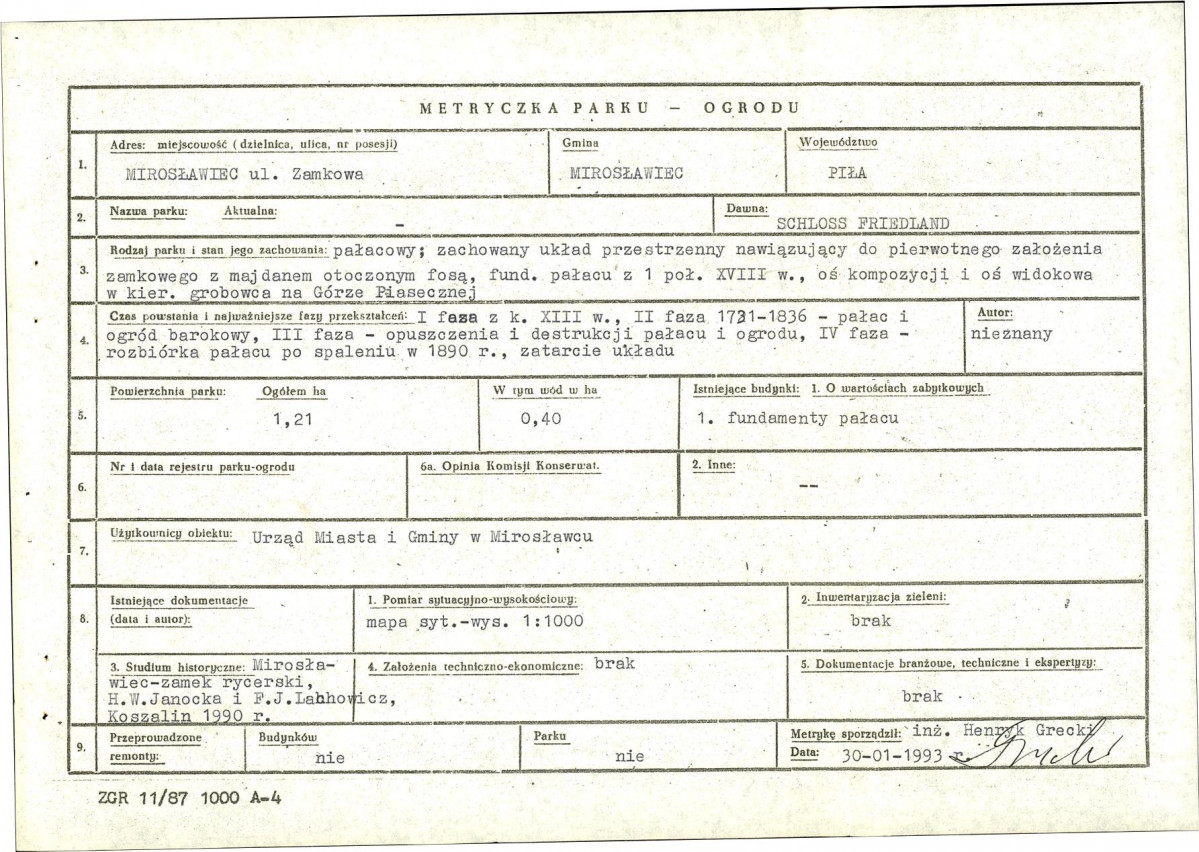 METRYCZKA PARKU - OGRODU
1. Adres: miejscowość (dzielnica, ulica, nr posesji) Gmina Województwo
MIROSŁAWIEC ul. Zamkowa MIROSŁAWIEC PIŁA
2. Nazwa parku: Aktualna: - Dawna:
SCHLOSS FRIEDLAND
3. Rodzaj parku i stan jego zachowania: pałacowy; zachowany układ przestrzenny nawiązujący do pierwotnego założenia
zamkowego z majdanem otoczonym fosą, fund. pałacu z 1 poł. XVIII w., oś kompozycji i oś widokowa
w kier. grobowca na Górze Piasecznej
4. Czas powstania i najważniejsze fazy przekształceń: I faza z k. XIII w., II faza 1731-1836 - pałac i
ogród barokowy, III faza - opuszczenia i destrukcji pałacu i ogrodu, IV faza -
rozbiórka pałacu po spaleniu w 1890 r., zatarcie układu
Autor:
nieznany
5. Powierzchnia parku: Ogółem ha W tym wód w ha Istniejące budynki: 1. O wartościach zabytkowych
1,21 0,40 1. fundamenty pałacu
6. Nr i data rejestru parku-ogrodu 6a. Opinia Komisji Konserwat. 2. Inne:
--
7. Użytkownicy obiektu: Urząd Miasta i Gminy w Mirosławcu
8. Istniejące dokumentacje
(data i autor):
1. Pomiar sytuacyjno-wysokościowy:
mapa syt.-wys. 1:1000
2. Inwentaryzacja zieleni:
brak
3. Studium historyczne: Mirosła-
wiec-zamek rycerski,
H.W.Janocka i F.J.Lachowicz,
Koszalin 1990 r.
4. Założenia techniczno-ekonomiczne: brak
5. Dokumentacje branżowe, techniczne i ekspertyzy:
brak
9. Przeprowadzone
remonty:
Budynków
nie
Parku
nie
Metrykę sporządził: inż. Henryk Grecki
Data: 30-01-1993 r.
ZGR 11/87 1000 A-4